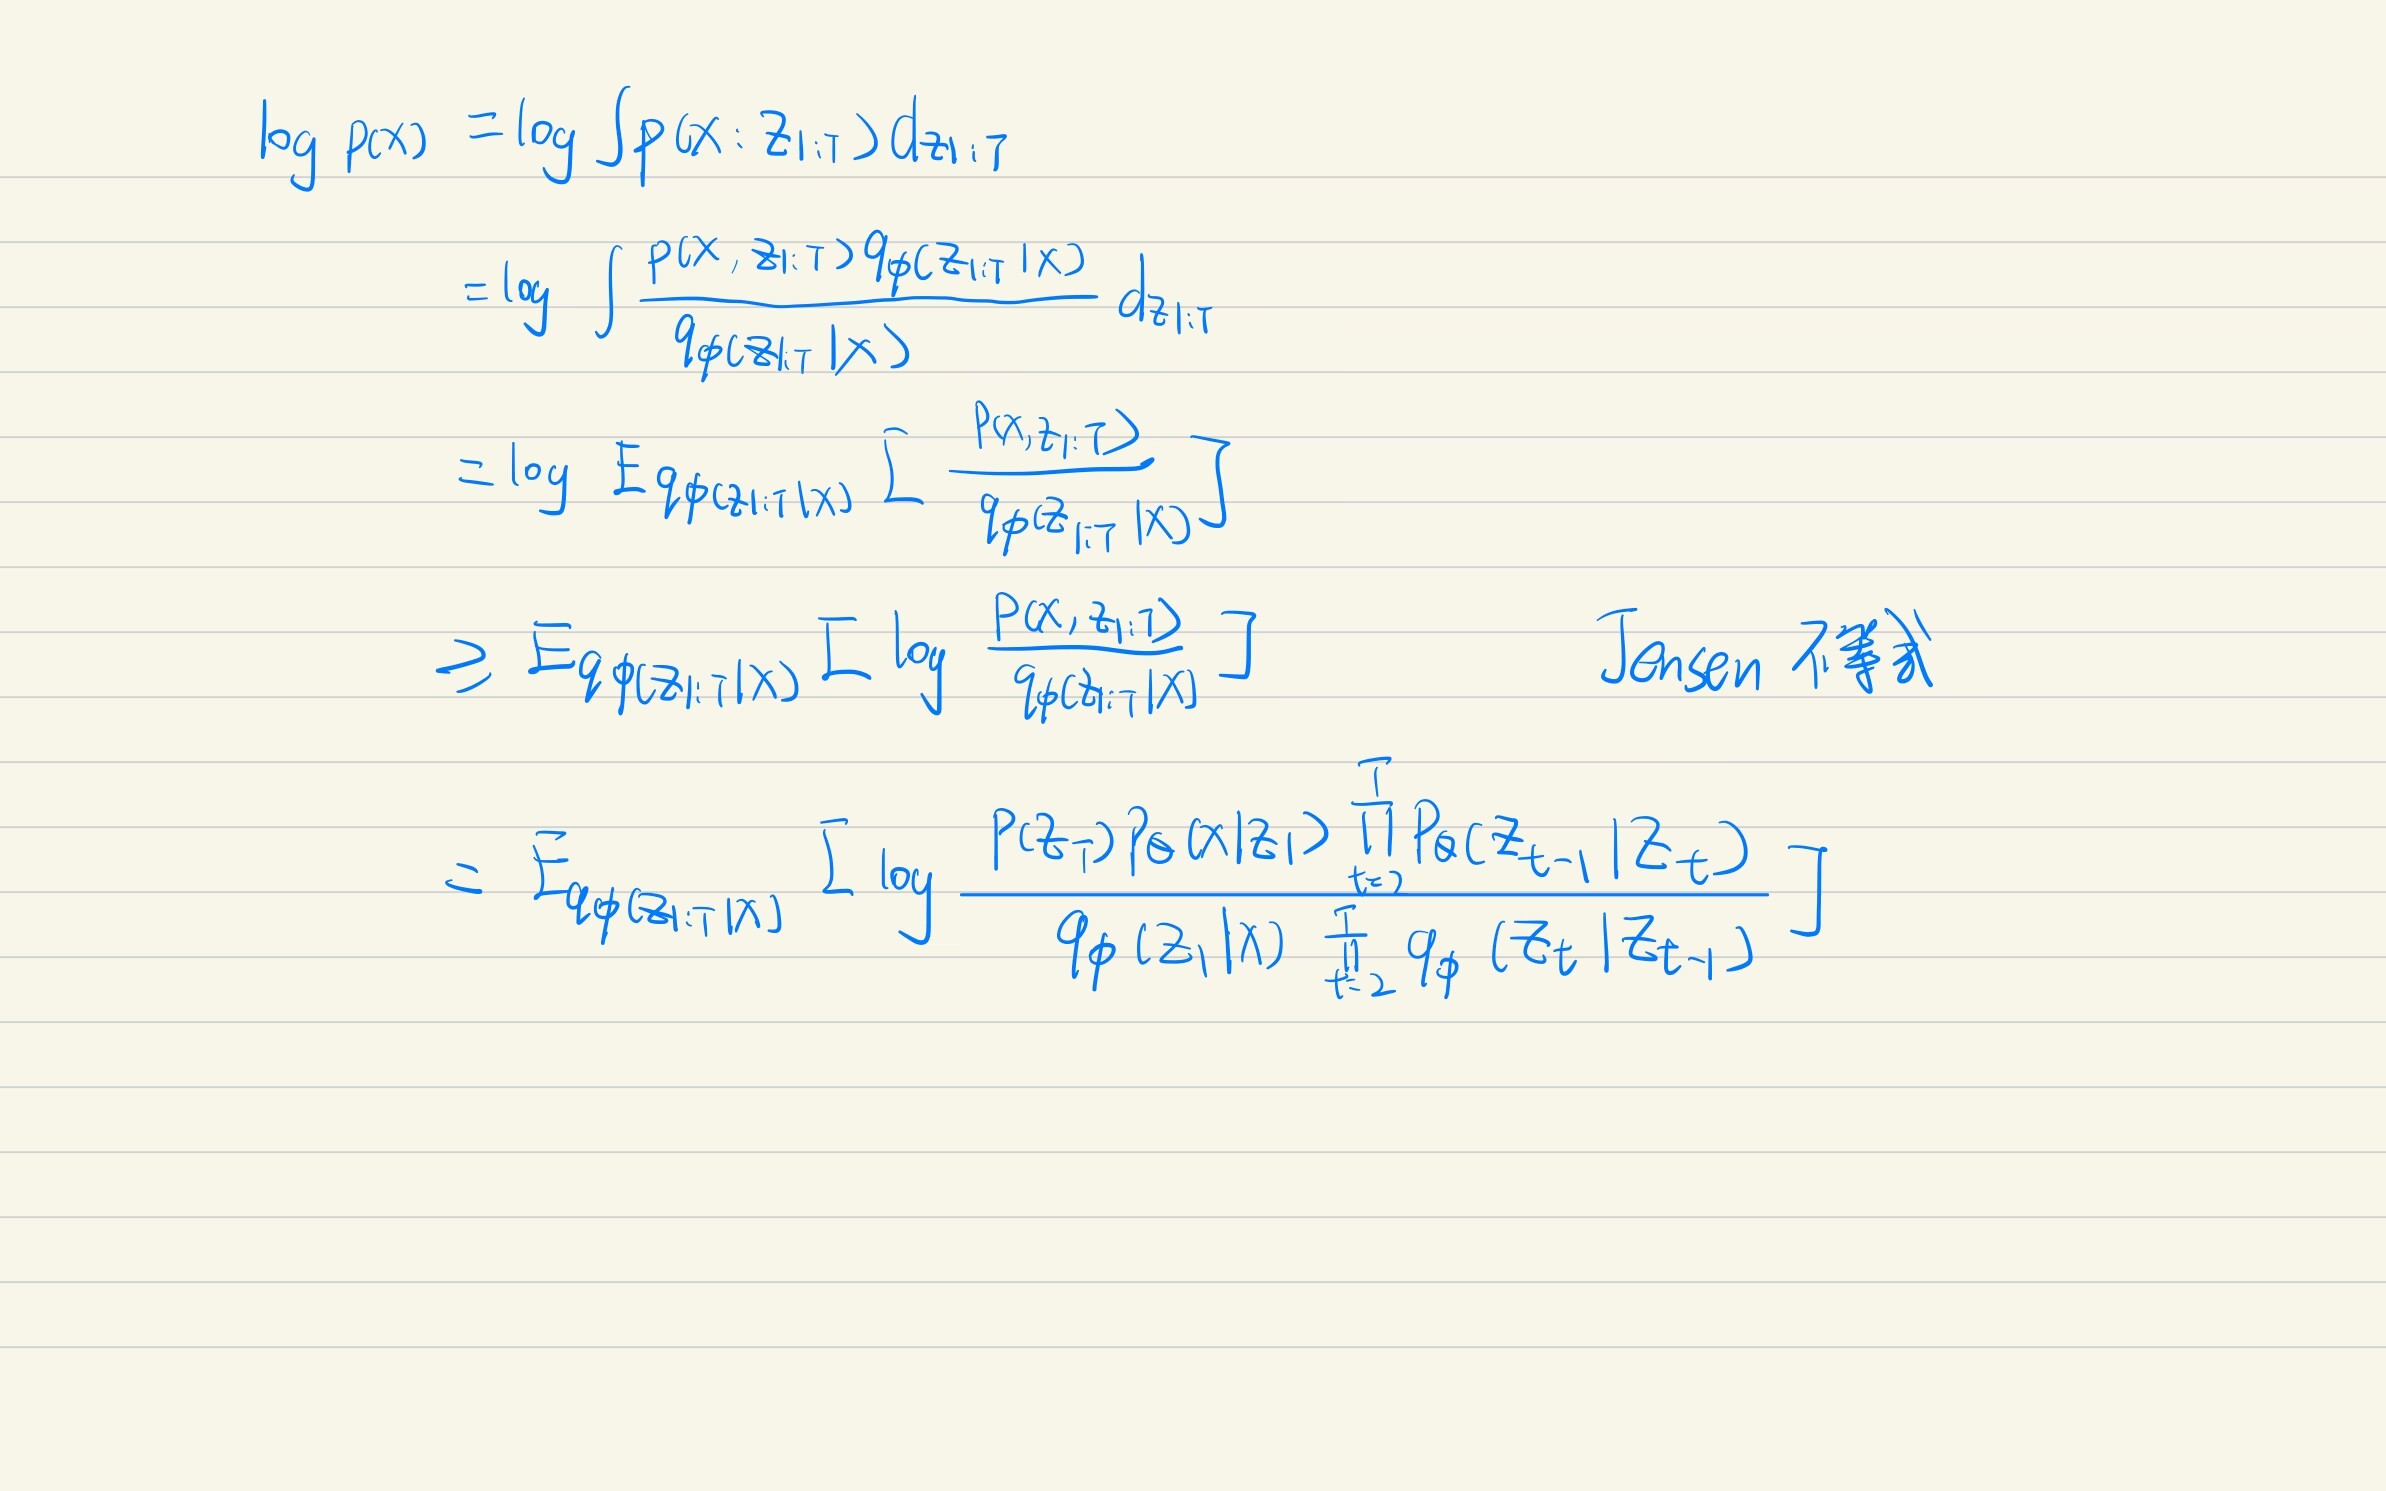 log p(x) = log ∫ p(x : z_{1:T}) d_{z_{1:T}}
= log ∫ \frac{p(x, z_{1:T}) q_ϕ(z_{1:T}|x)}{q_ϕ(z_{1:T}|x)} d_{z_{1:T}}
= log E_{q_ϕ(z_{1:T}|x)} [ \frac{p(x, z_{1:T})}{q_ϕ(z_{1:T}|x)} ]
≥ E_{q_ϕ(z_{1:T}|x)} [ log \frac{p(x, z_{1:T})}{q_ϕ(z_{1:T}|x)} ] Jensen 不等式
= E_{q_ϕ(z_{1:T}|x)} [ log \frac{p(z_T) p_θ(x|z_1) ∏_{t=2}^{T} p_θ(z_{t-1}|z_t)}{q_ϕ(z_1|x) ∏_{t=2}^{T} q_ϕ(z_t|z_{t-1})} ]